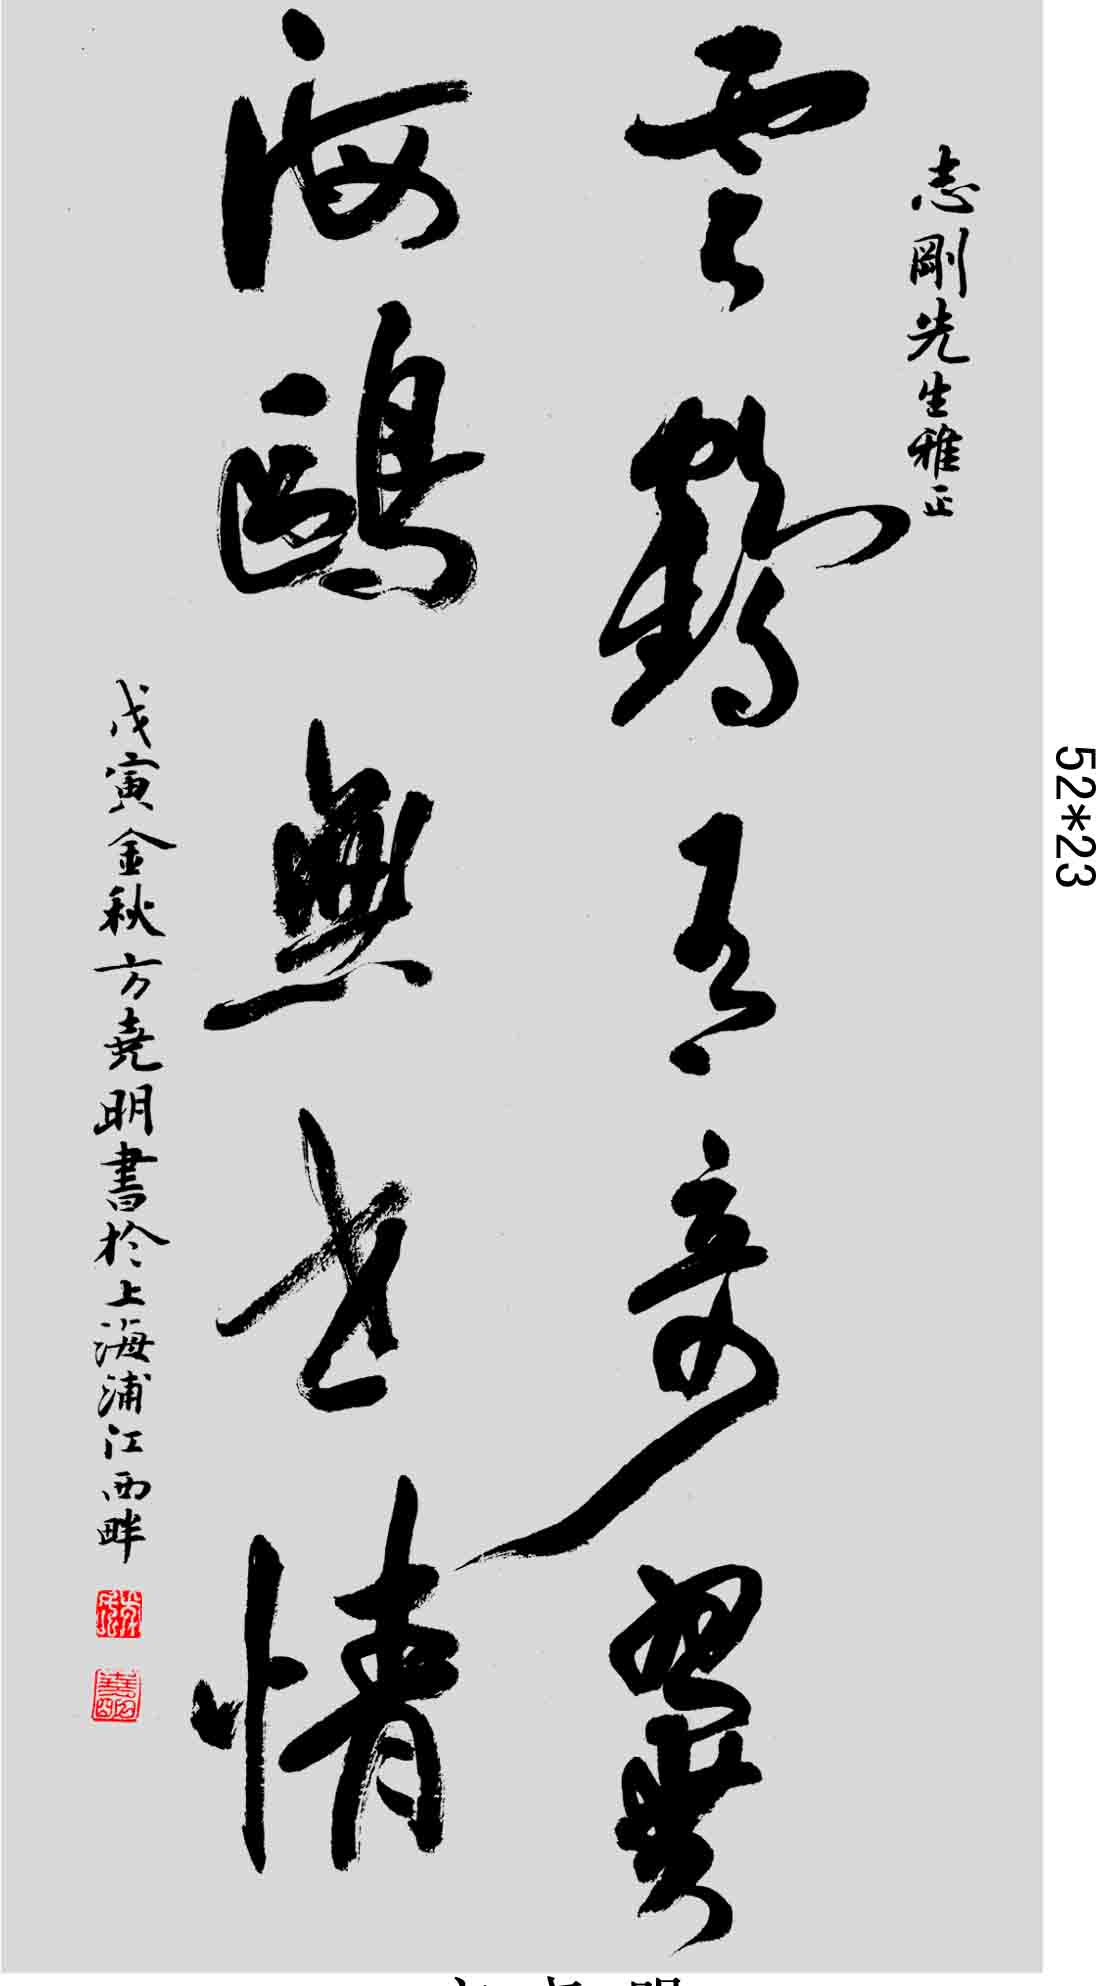 志剛先生雅正
雲鶴有奇翼
海鷗無世情
戊寅金秋方堯明書於上海浦江西畔
52*23